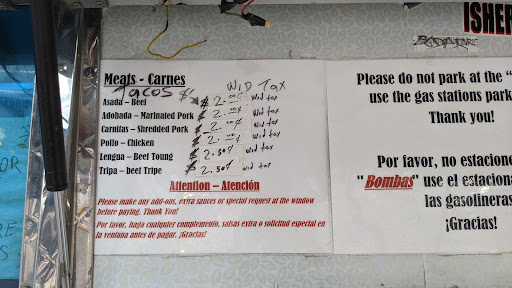 ISHER
Meats - Carnes
Tacos $ Wid Tax
Asada – Beef $ 2.00¢ wid tax
Adobada – Marinated Pork $ 2.00¢ wid tax
Carnitas – Shredded Pork $ 2.00¢ wid tax
Pollo – Chicken $ 2.00¢ wid tax
Lengua – Beef Toung $ 2.50¢ wid tax
Tripa – beef Tripe $ 2.50¢ wid tax
Attention – Atención
Please make any add-ons, extra sauces or special request at the window
before paying. Thank You!
Por favor, haga cualquier complemento, salsas extra o solicitud especial en
la ventana antes de pagar. ¡Gracias!
Please do not park at the “
use the gas stations park
Thank you!
Por favor, no estacione
"Bombas" use el estaciona
las gasolineras
¡Gracias!